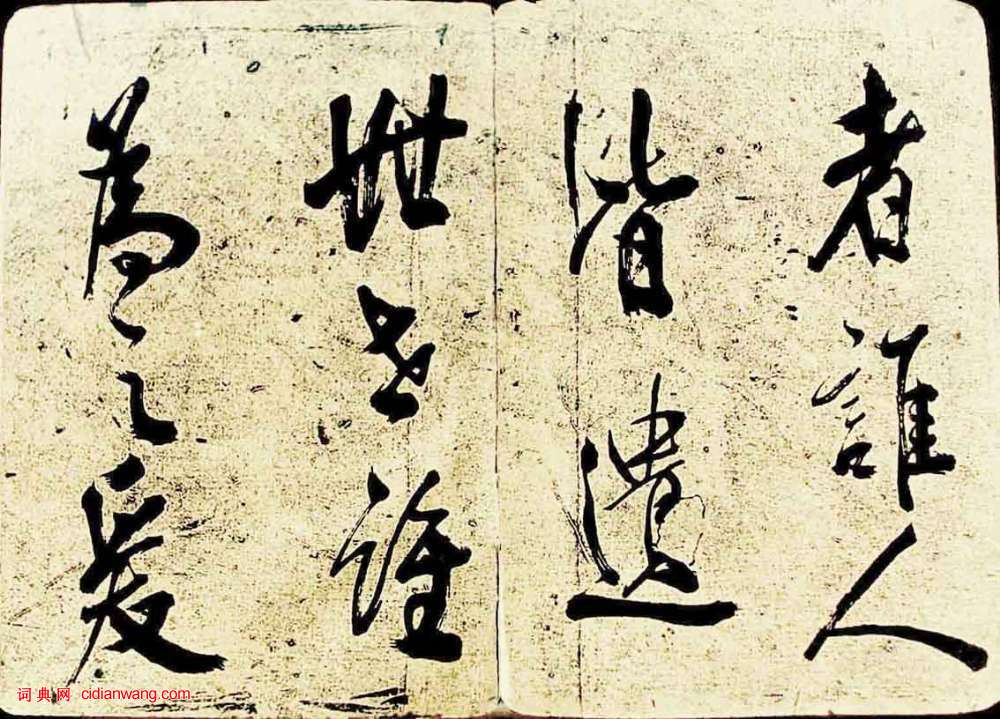 者誰人
皆遺
世世誰
為之爰
词典网 cidianwang.com